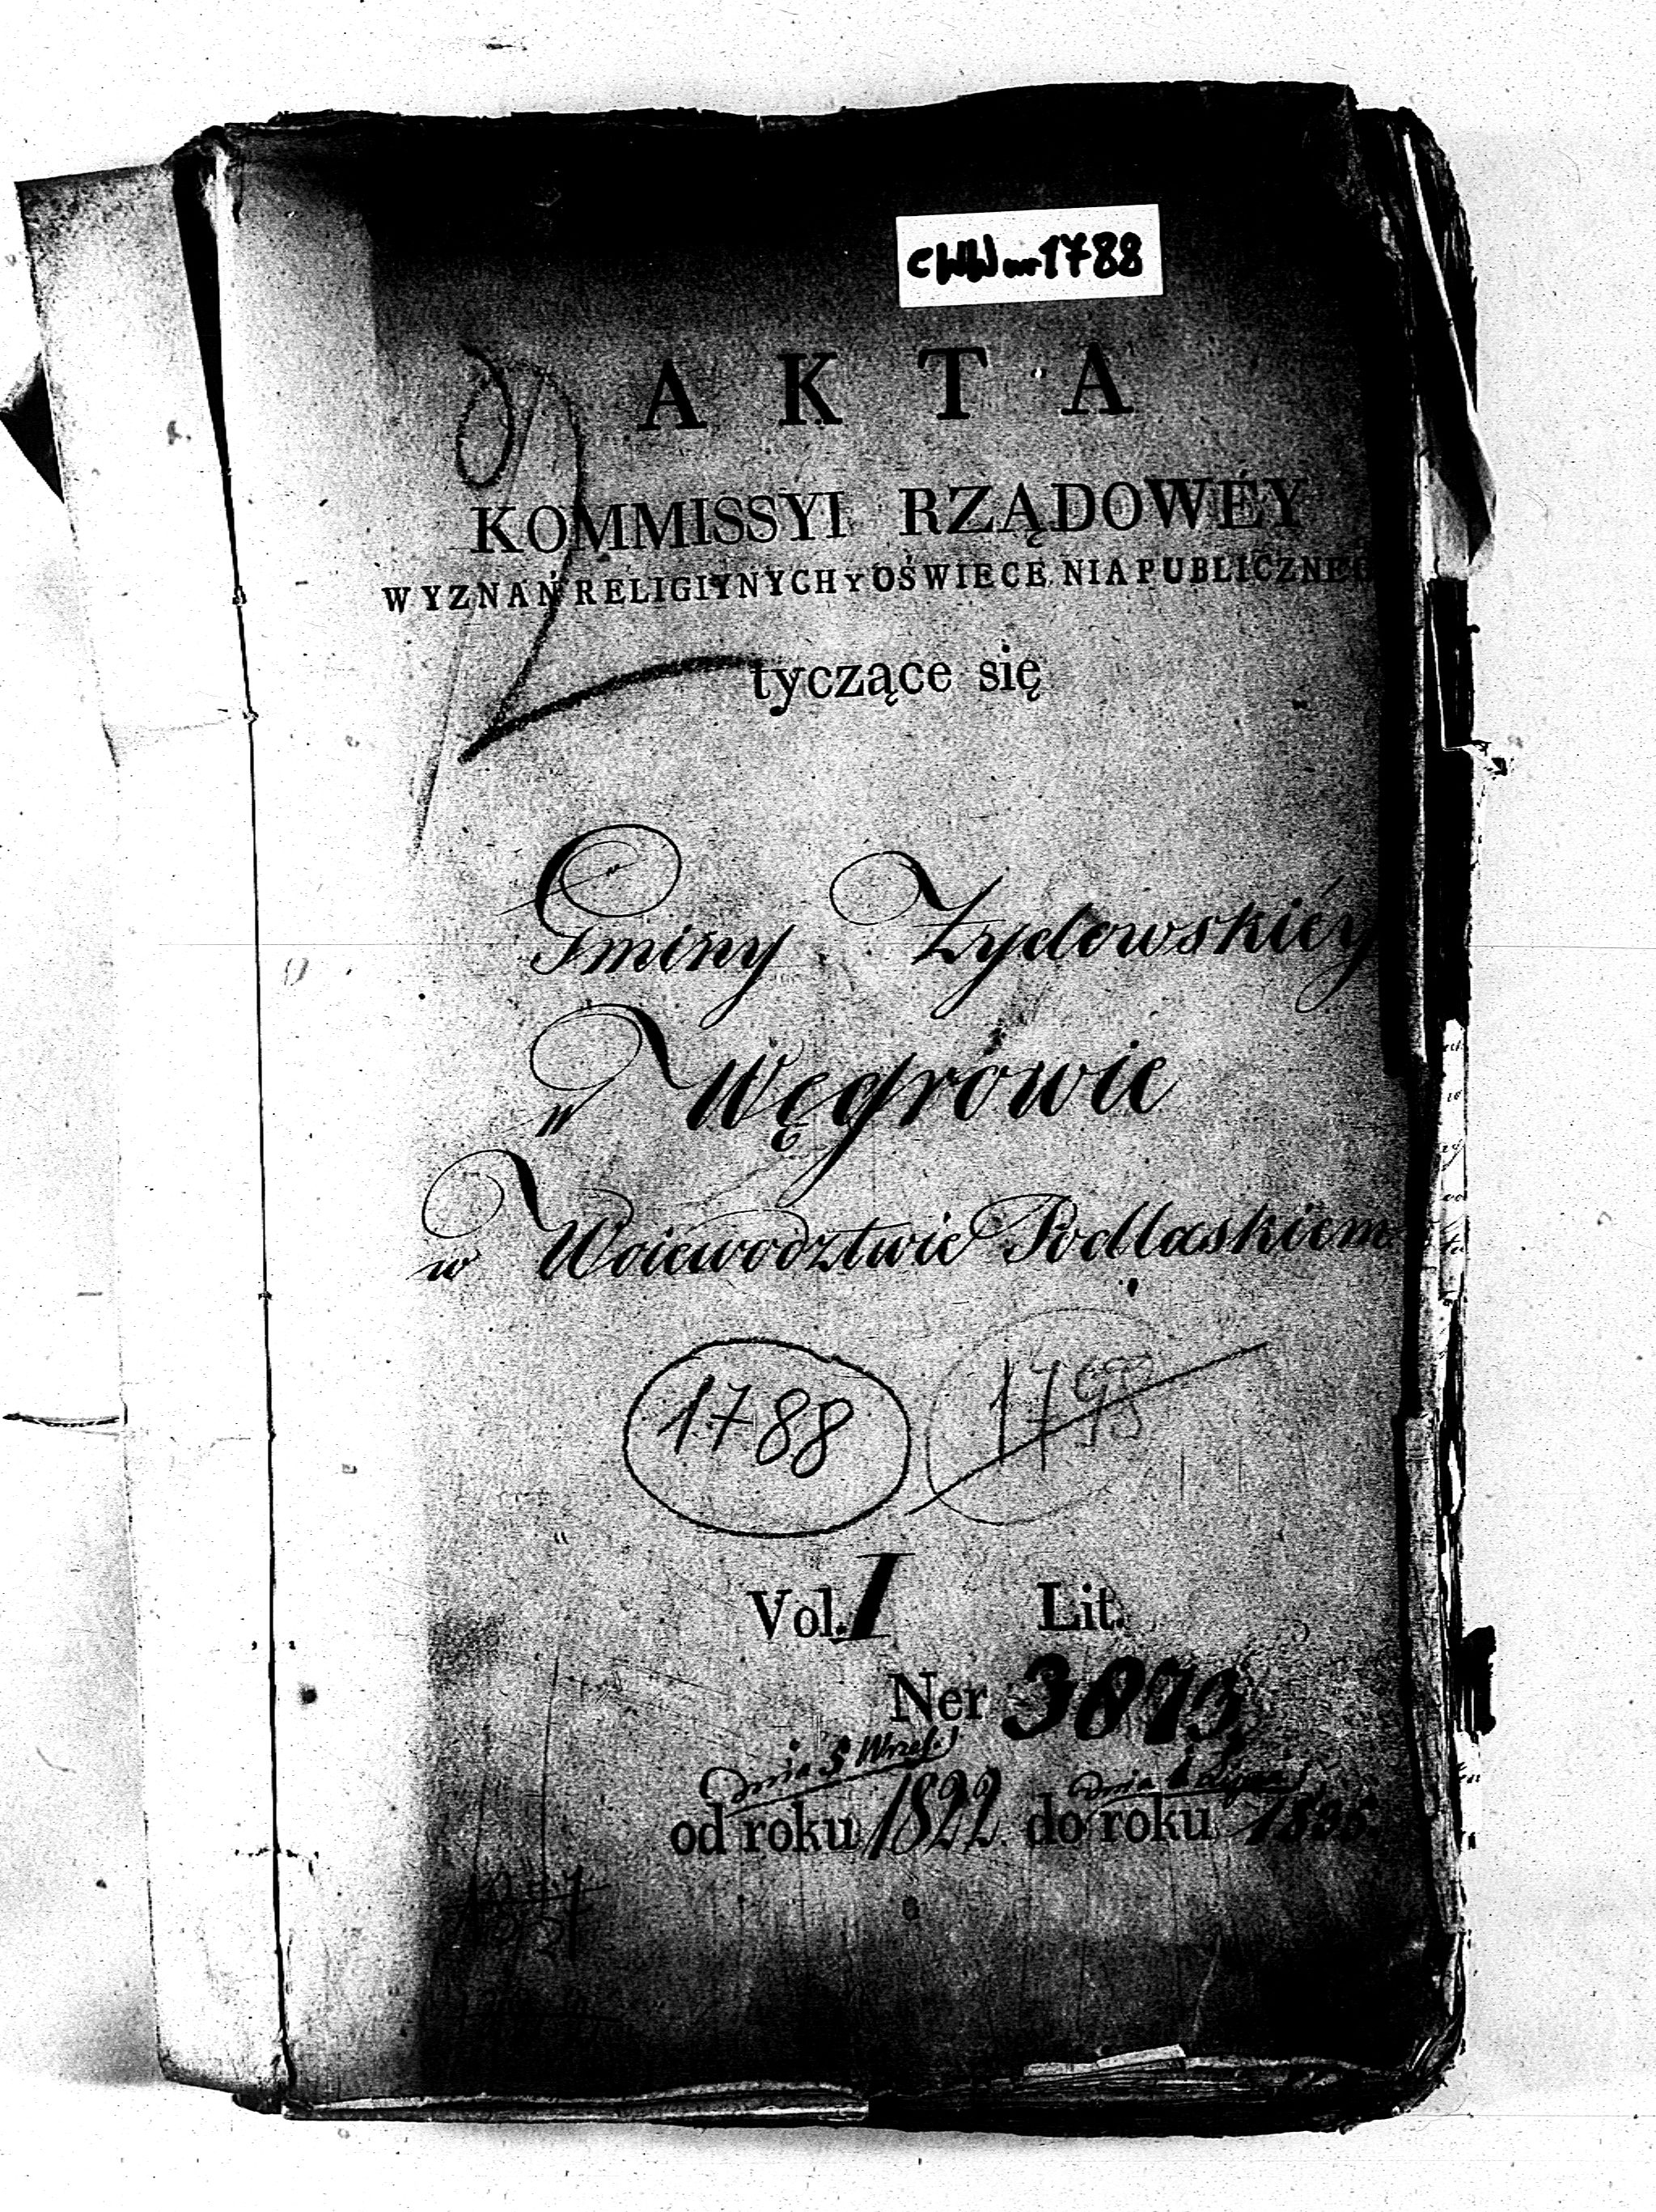 CWW nr 1788
2
A K T A
KOMMISSYI RZĄDOWÉY
WYZNAŃ RELIGIYNYCH Y OŚWIECENIA PUBLICZNEG
tyczące się
Gminy Żydowskiéy
w Węgrowie
w Woiewodztwie Podlaskiem
1788 1798
Vol. I Lit.
Ner 3873
Dnia 5 Wrześ.
od roku 1822 do roku 1835